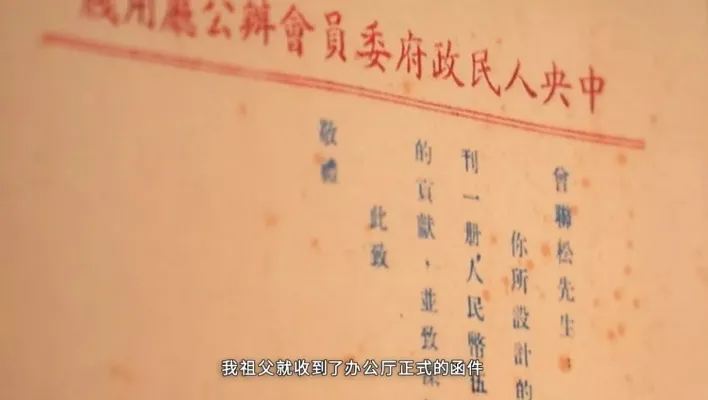 中央人民政府委員會辦公廳用箋
曾聯松先生：
你所設計的
刊一册，人民幣伍
的貢獻，並致深
此致
敬禮
我祖父就收到了办公厅正式的函件